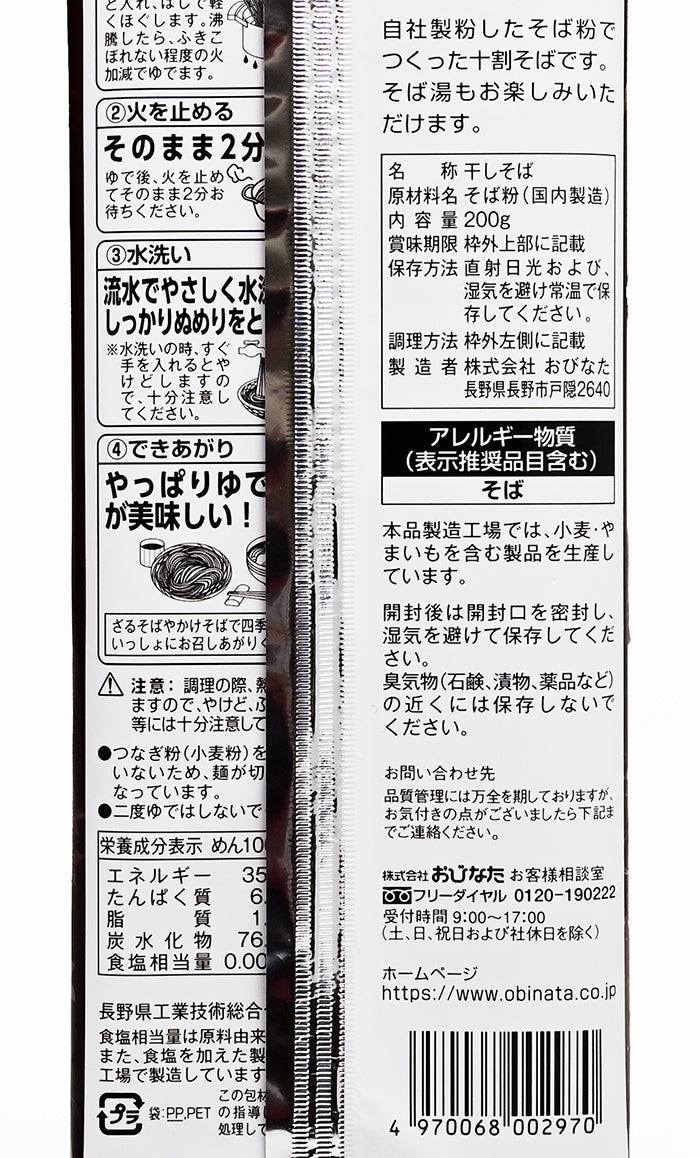 と入れ、はしで軽
くほぐします。沸
騰したら、ふきこ
ぼれない程度の火
加減でゆでます。
②火を止める
そのまま2分
ゆで後、火を止め
てそのまま2分お
待ちください。
③水洗い
流水でやさしく水洗
しっかりぬめりをと
※水洗いの時、すぐ
手を入れるとや
けどしますの
で、十分注意し
てください。
④できあがり
やっぱりゆで
が美味しい!
ざるそばやかけそばで四季
いっしょにお召しあがりく
注意: 調理の際、熱
ますので、やけど、ぶ
等には十分注意して
●つなぎ粉(小麦粉)を
いないため、麺が切
なっています。
●二度ゆではしないで
栄養成分表示 めん100
エネルギー 35
たんぱく質 6.
脂質 1.
炭水化物 76.
食塩相当量 0.00
長野県工業技術総合
食塩相当量は原料由来
また、食塩を加えた製
工場で製造しています
プラ
袋:PP,PET
この包材
の指導に
処理して
自社製粉したそば粉で
つくった十割そばです。
そば湯もお楽しみいた
だけます。
名称 干しそば
原材料名 そば粉(国内製造)
内容量 200g
賞味期限 枠外上部に記載
保存方法 直射日光および、
湿気を避け常温で保
存してください。
調理方法 枠外左側に記載
製造者 株式会社 おびなた
長野県長野市戸隠2640
アレルギー物質
(表示推奨品目含む)
そば
本品製造工場では、小麦・や
まいもを含む製品を生産し
ています。
開封後は開封口を密封し、
湿気を避けて保存してくだ
さい。
臭気物(石鹸、漬物、薬品など)
の近くには保存しないで
ください。
お問い合わせ先
品質管理には万全を期しておりますが、
お気付きの点がございましたら下記ま
でご連絡ください。
株式会社 おびなた お客様相談室
フリーダイヤル 0120-190222
受付時間 9:00〜17:00
(土、日、祝日および社休日を除く)
ホームページ
https://www.obinata.co.jp
4 970068 002970